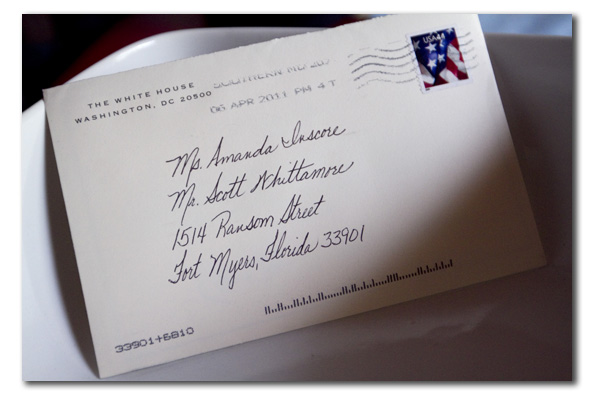 THE WHITE HOUSE
WASHINGTON, DC 20500
SOUTHERN MD 207
06 APR 2011 PM 4 T
USA
Ms. Amanda Inscore
Mr. Scott Whittamore
1514 Ransom Street
Fort Myers, Florida 33901
33901+6810